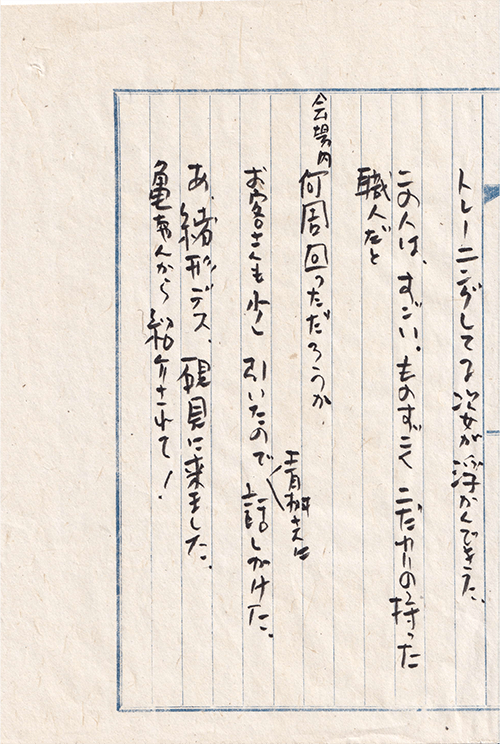 トレーニングしてる姿が浮かんできた、
この人は、すごい。ものすごく こだわりの持った
職人だと
会場内何周回っただろうか、
お客さんも少し引いたので青柳さんに話しかけた。
あ、緒形デス、硯見に来ました。
亀さんから紹介されて！